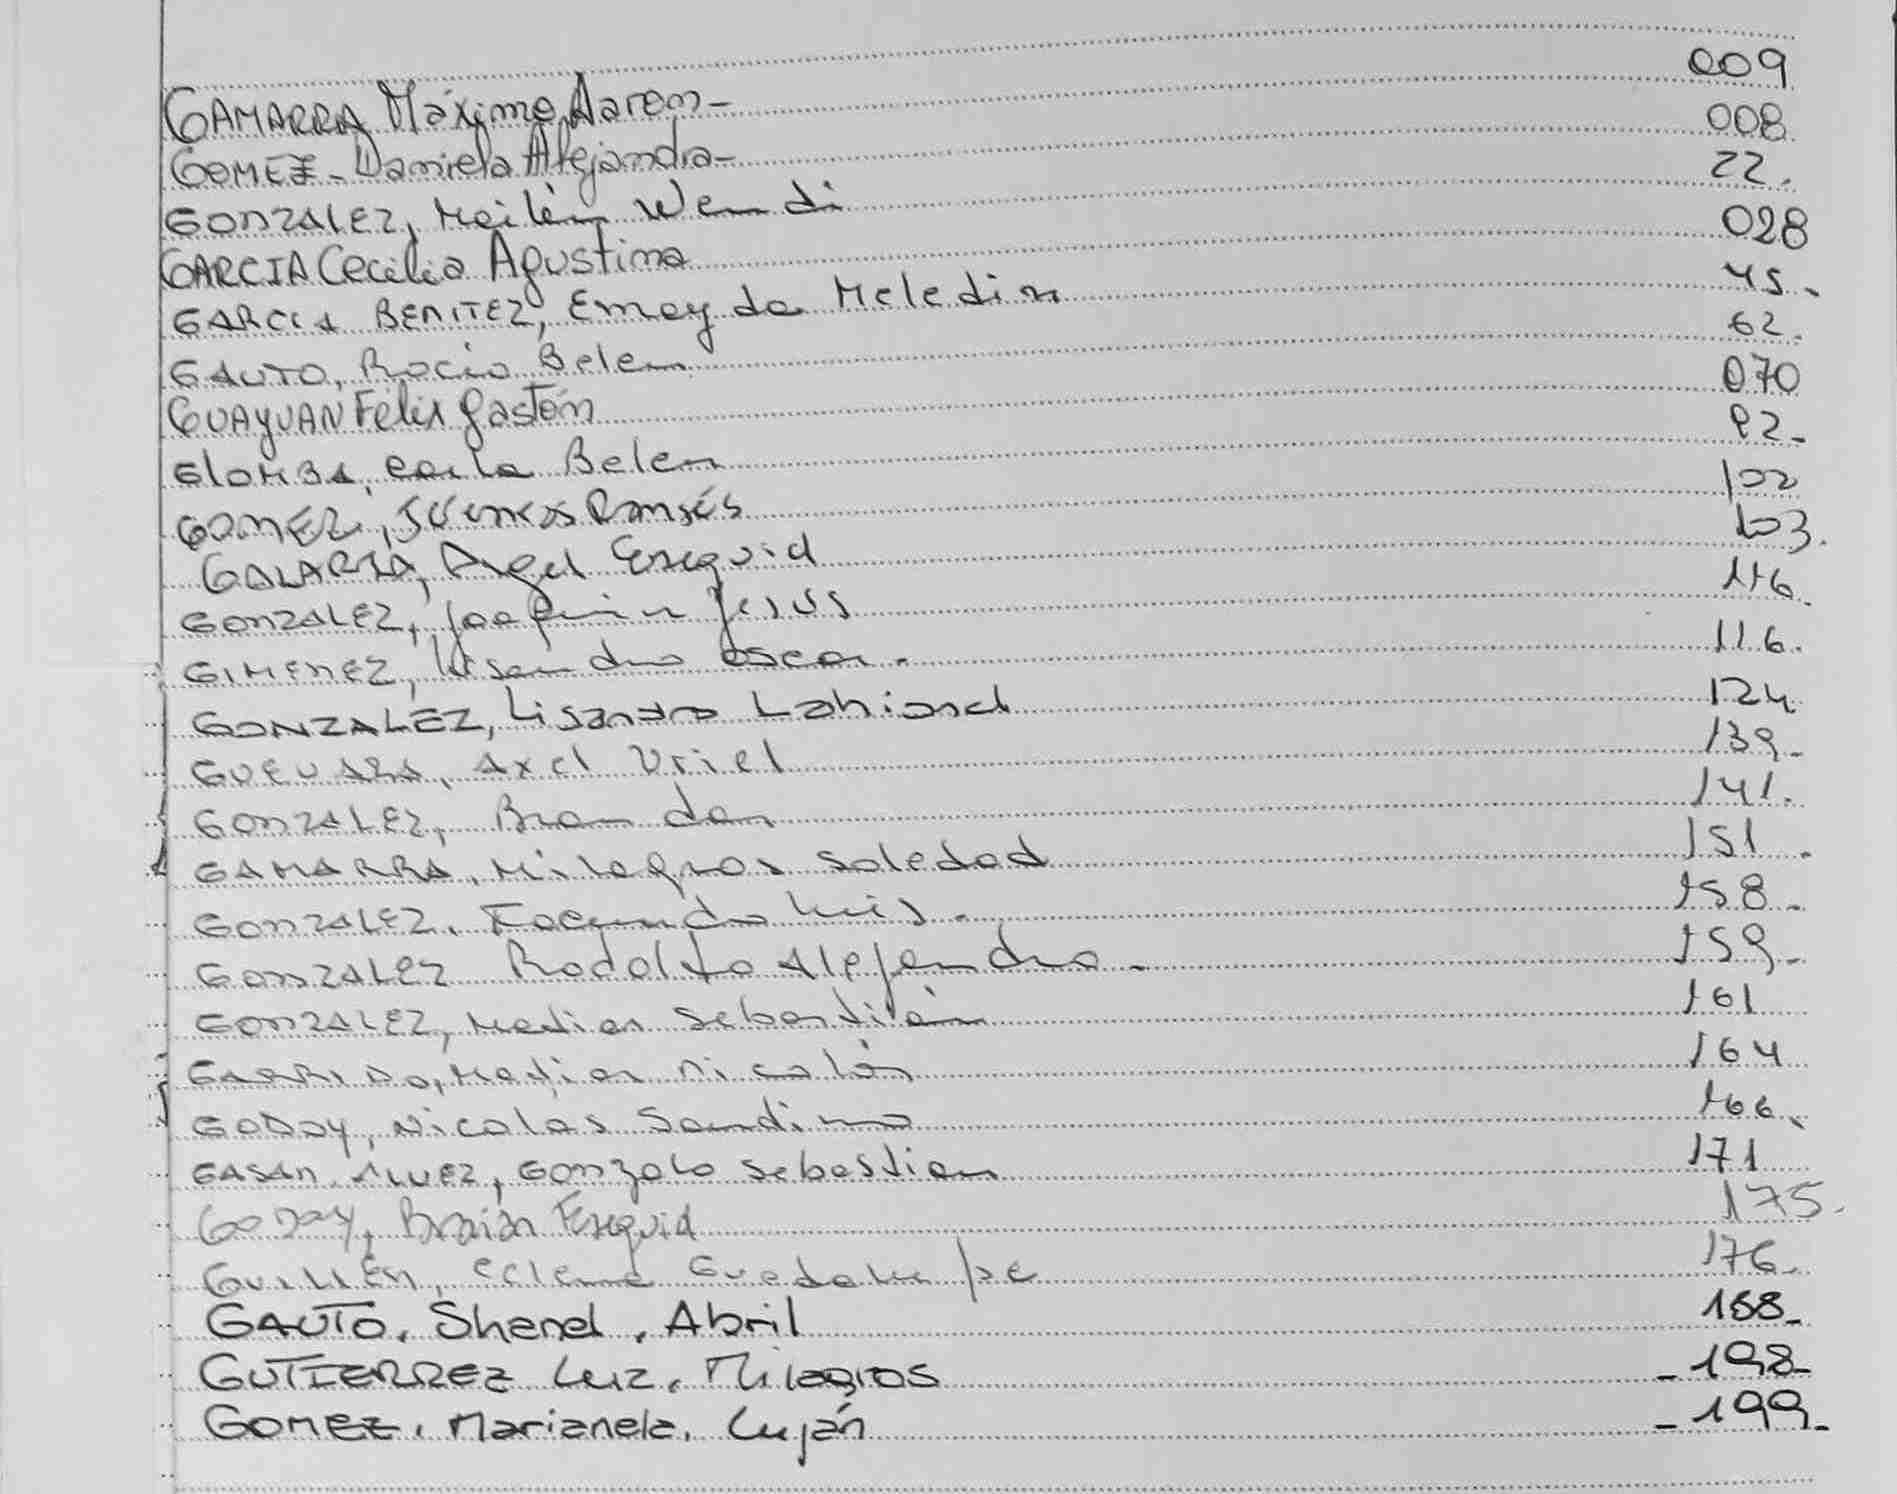 GAMARRA Máximo Aaron - 009
GOMEZ - Daniela Alejandra - 008
GONZALEZ, Meilén Wendi 22.
GARCIA Cecilia Agustina 028
GARCIA BENITEZ, Emely da 45.
GAUTO, Rocio Belen 62.
GUAYUAN Félix Gastón 070
GLOMBA, Carla Belen 92-
GOMEZ, Ramsés 102
GALARZA, Angel Exequiel 103.
GONZALEZ, Joaquin Jesus 116.
GIMENEZ, Lisandro Oscar. 116.
GONZALEZ, Lisandro 124
GUEVARA, Axel Uriel 139-
GONZALEZ, Brandan 141.
GAMARRA, Milagros Soledad 151.
GONZALEZ, Facundo Luis. 158.
GONZALEZ Rodolfo Alejandro. 159.
GONZALEZ, Matias Sebastián 161
GARRIDO, Matias Nicolás 164
GODOY, Nicolas Sandino 166.
GASAN ALVEZ, Gonzalo Sebastian 171
GODOY, Braian Exequiel 175.
GUILLÉN, Guadalupe 176.
GAUTO, Sharel, Abril 188-
GUTIERREZ Luz, Milagros - 198-
GOMEZ, Marianela, Luján - 199-